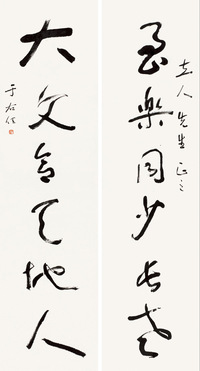 立人先生正之
至樂同少長老
大文含天地人
于右任